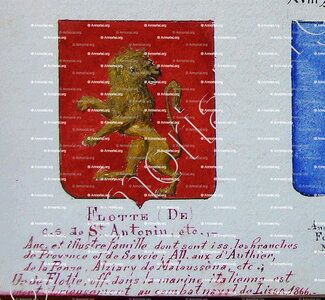 FLOTTE (DE
c.s. de St Antonin, etc.,
Anc. et illustre famille dont sont iss. les branches
de Provence et de Savoie; All. aux d'Authier,
de la Penne, Alziary de Malaussena, etc.;
de Flotte, off. dans la marine italienne est
au combat naval de Lissa 1866.